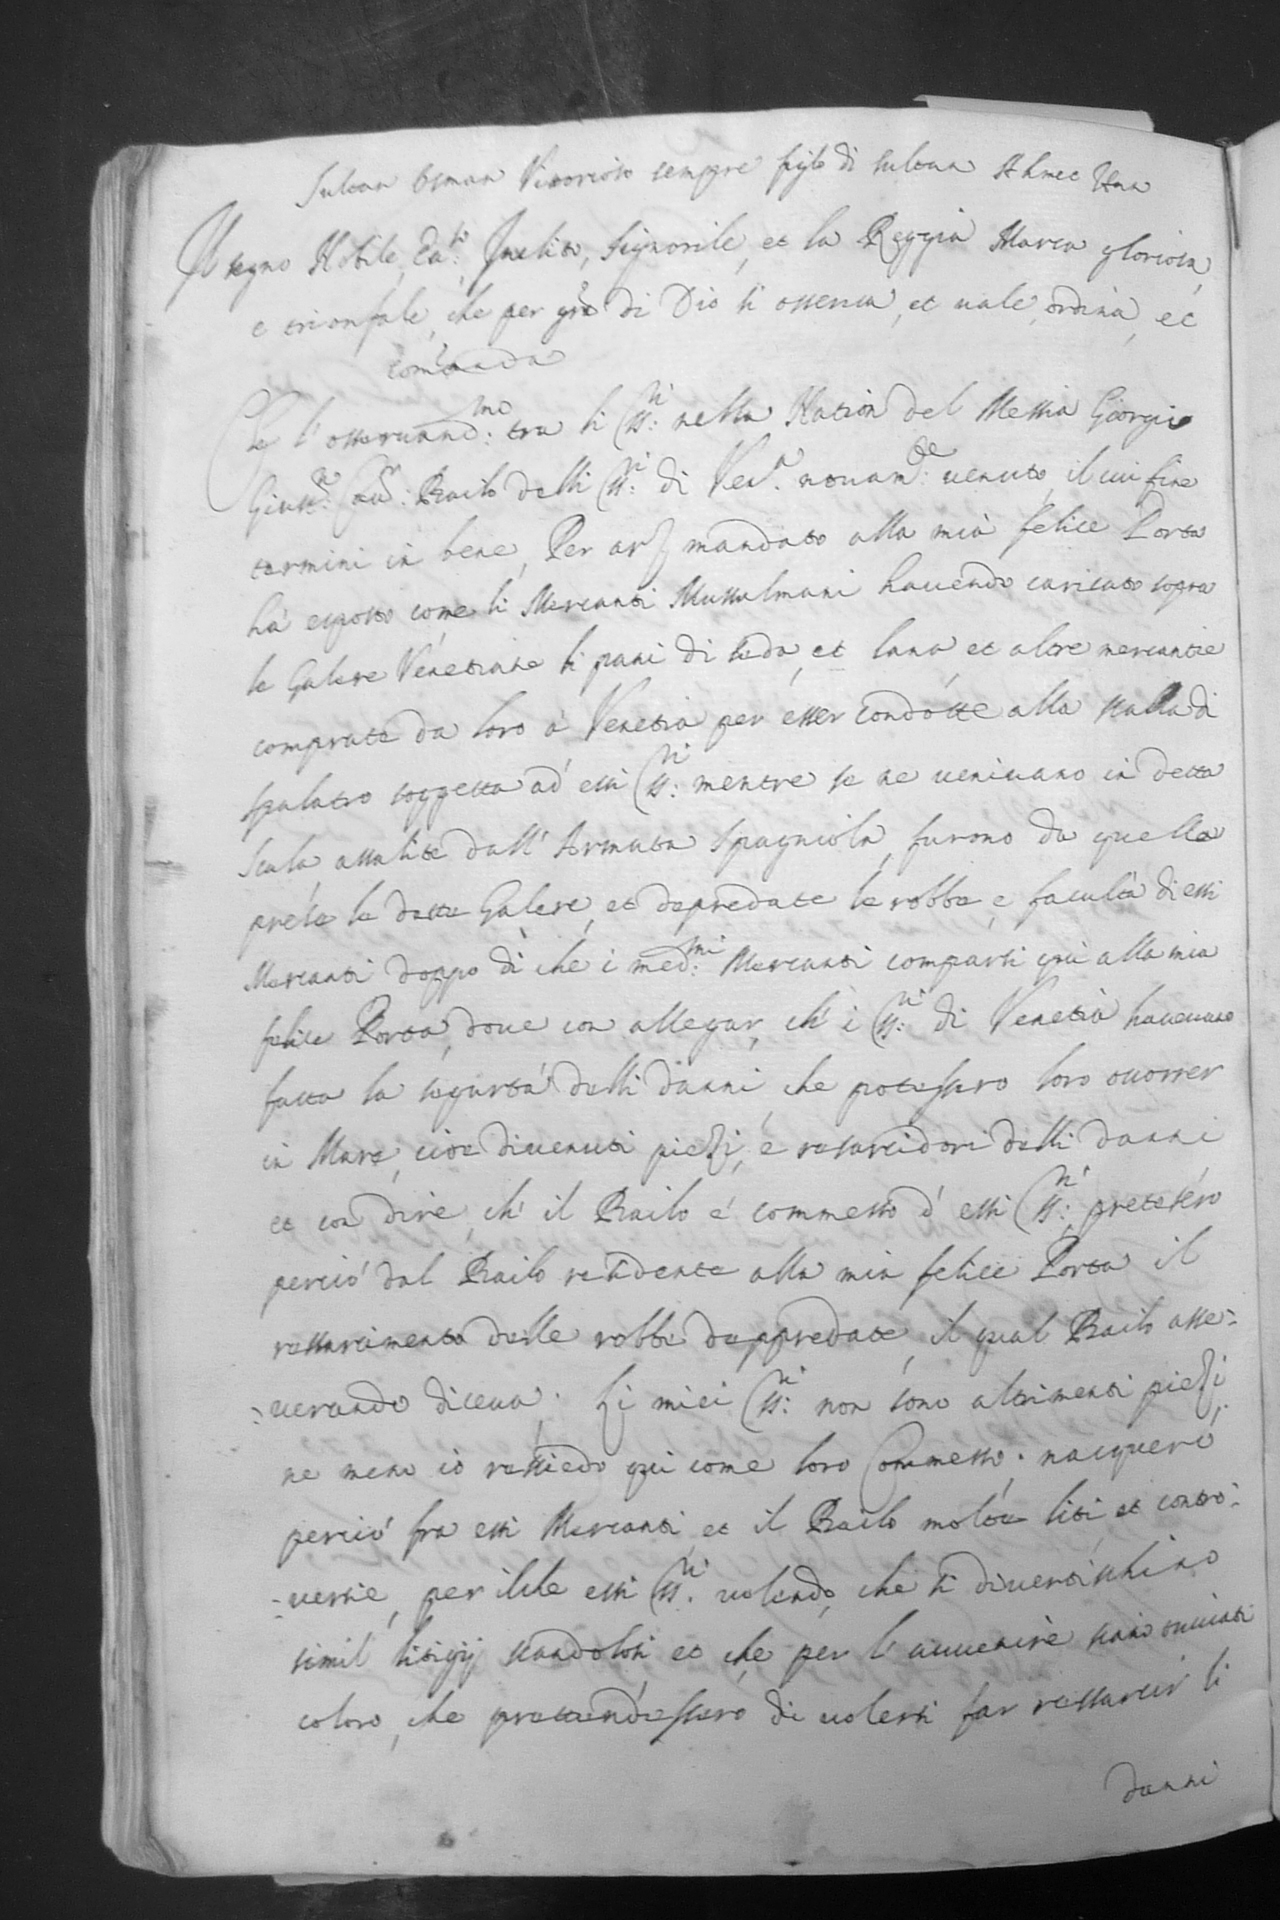 Sultan Osman Vittorioso sempre figlo di Sultan Ahmet Han
Il segno Nobile, Ecc.so, Inclito, Signorile, et la Reggia Marca gloriosa,
e trionfale, che per gra di Dio si osserva, et vale, ordina, et
comanda
Che l'osservand.mo tra li SS.ri nella Nation del Messia Giorgio
Giust.no Cau.r: Bailo delli SS.ri di Ven.a novam.te venuto, il cui fine
termini in bene, Per arz mandato alla mia felice Porta
hà esposto come li Mercanti Mussulmani havendo caricato sopra
le Galere Venetiane li pani di seda, et lana, et altre mercantie
comprate da loro à Venetia per esser condotte alla scalla di
Spalatro soggetta ad essi SS.ri mentre se ne venivano in detta
scala assalite dall'Armata Spagniola, furono da quella
prese le dette Galere, et depredate le robbe, e facultà di essi
Mercanti doppo di che i med.mi Mercanti comparsi quì alla mia
felice Porta, dove con allegar, ch'i SS.ri di Venetia havevano
fatta la segurtà delli danni, che potessero loro occorrer
in Mare, cioe divenuti piezi, e resarcidori delli danni
et con dire, ch'il Bailo è commesso d'essi SS.ri pretesero
perciò dal Bailo residente alla mia felice Porta il
ressarcimento delle robbe deppredate, il qual Bailo asse=
=verando diceva. Li miei SS.ri non sono altrimenti piezi,
ne meno io rissiedo qui come loro Commesso. nacquerò
perciò fra essi Mercanti, et il Bailo molte liti et contro=
=versie, per ilche essi SS.ri volendo, che si divertischino
simil litigij scandolosi et che per l'avvenire siano scacciati
coloro, che prettendessero di volersi far ressarcir li
danni